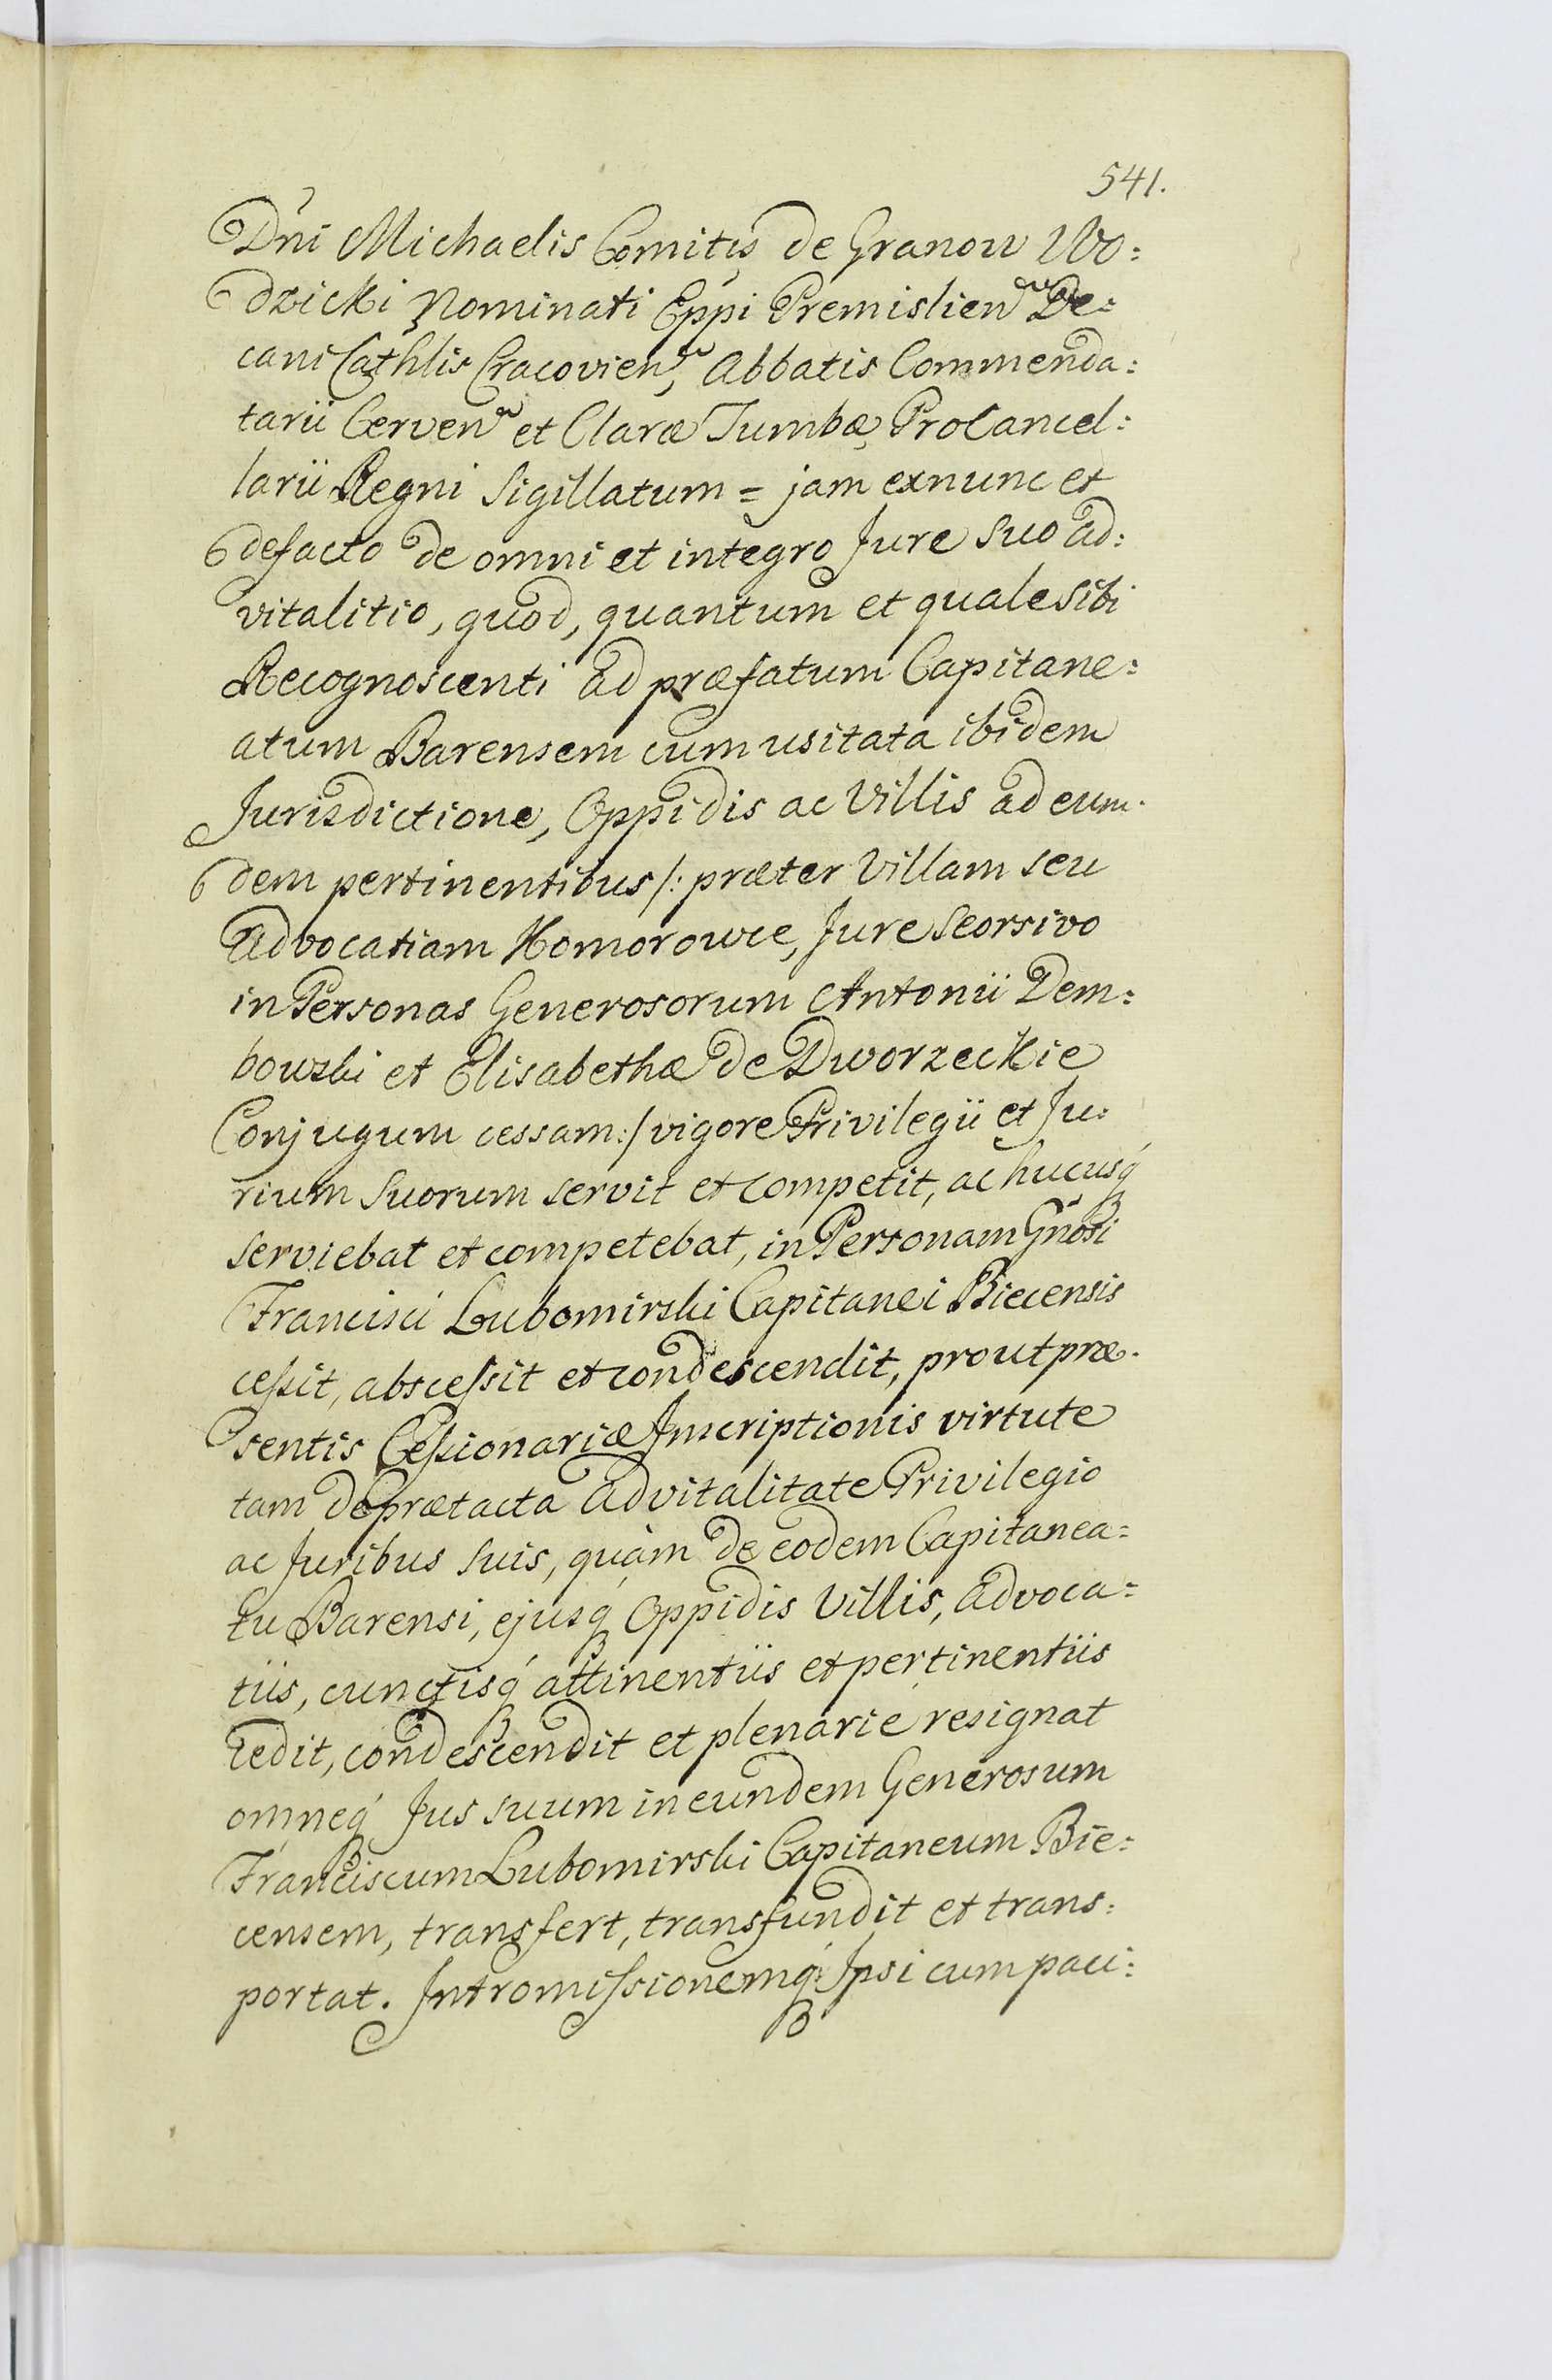 541.
Dn̄i Michaelis Comitis de Granow Wo=
dzicki Nominati Eppi Premislien De=
cani Cathlis Cracovien, Abbatis Commenda=
tarii Cerven et Claræ Tumbæ ProCancel=
larii Regni Sigillatum = jam exnunc et
defacto de omni et integro Jure suo ad=
vitalitio, quod, quantum et quale sibi
Recognoscenti ad præfatum Capitane=
atum Barensem cum usitata ibidem
Jurisdictione, Oppidis ac Villis ad eum=
dem pertinentibus /: præter Villam seu
Advocatiam Homorowce, Jure seorsivo
in Personas Generosorum Antonii Dem=
bowski et Elisabethæ de Dworzeckie
Conjugum cessam :/ vigore Privilegii et Ju=
rium suorum servit et competit, ac hucusq́
serviebat et competebat, in Personam Gn̄osi
Francisci Lubomirski Capitanei Biecensis
ceſsit, absceſsit et condescendit, prout præ=
sentis Ceſsionariæ Inscriptionis virtute
tam de prætacta advitalitate Privilegio
ac Juribus suis, quàm de eodem Capitanea=
tu Barensi, ejusq́ Oppidis Villis, advoca=
tiis, cunctisq́ attinentiis et pertinentiis
cedit, condescendit et plenarie resignat
omneq́ Jus suum in eundem Generosum
Franciscum Lubomirski Capitaneum Bie=
censem, transfert, transfundit et trans=
portat. Intromiſsionemq́ Ipsi cum paci=